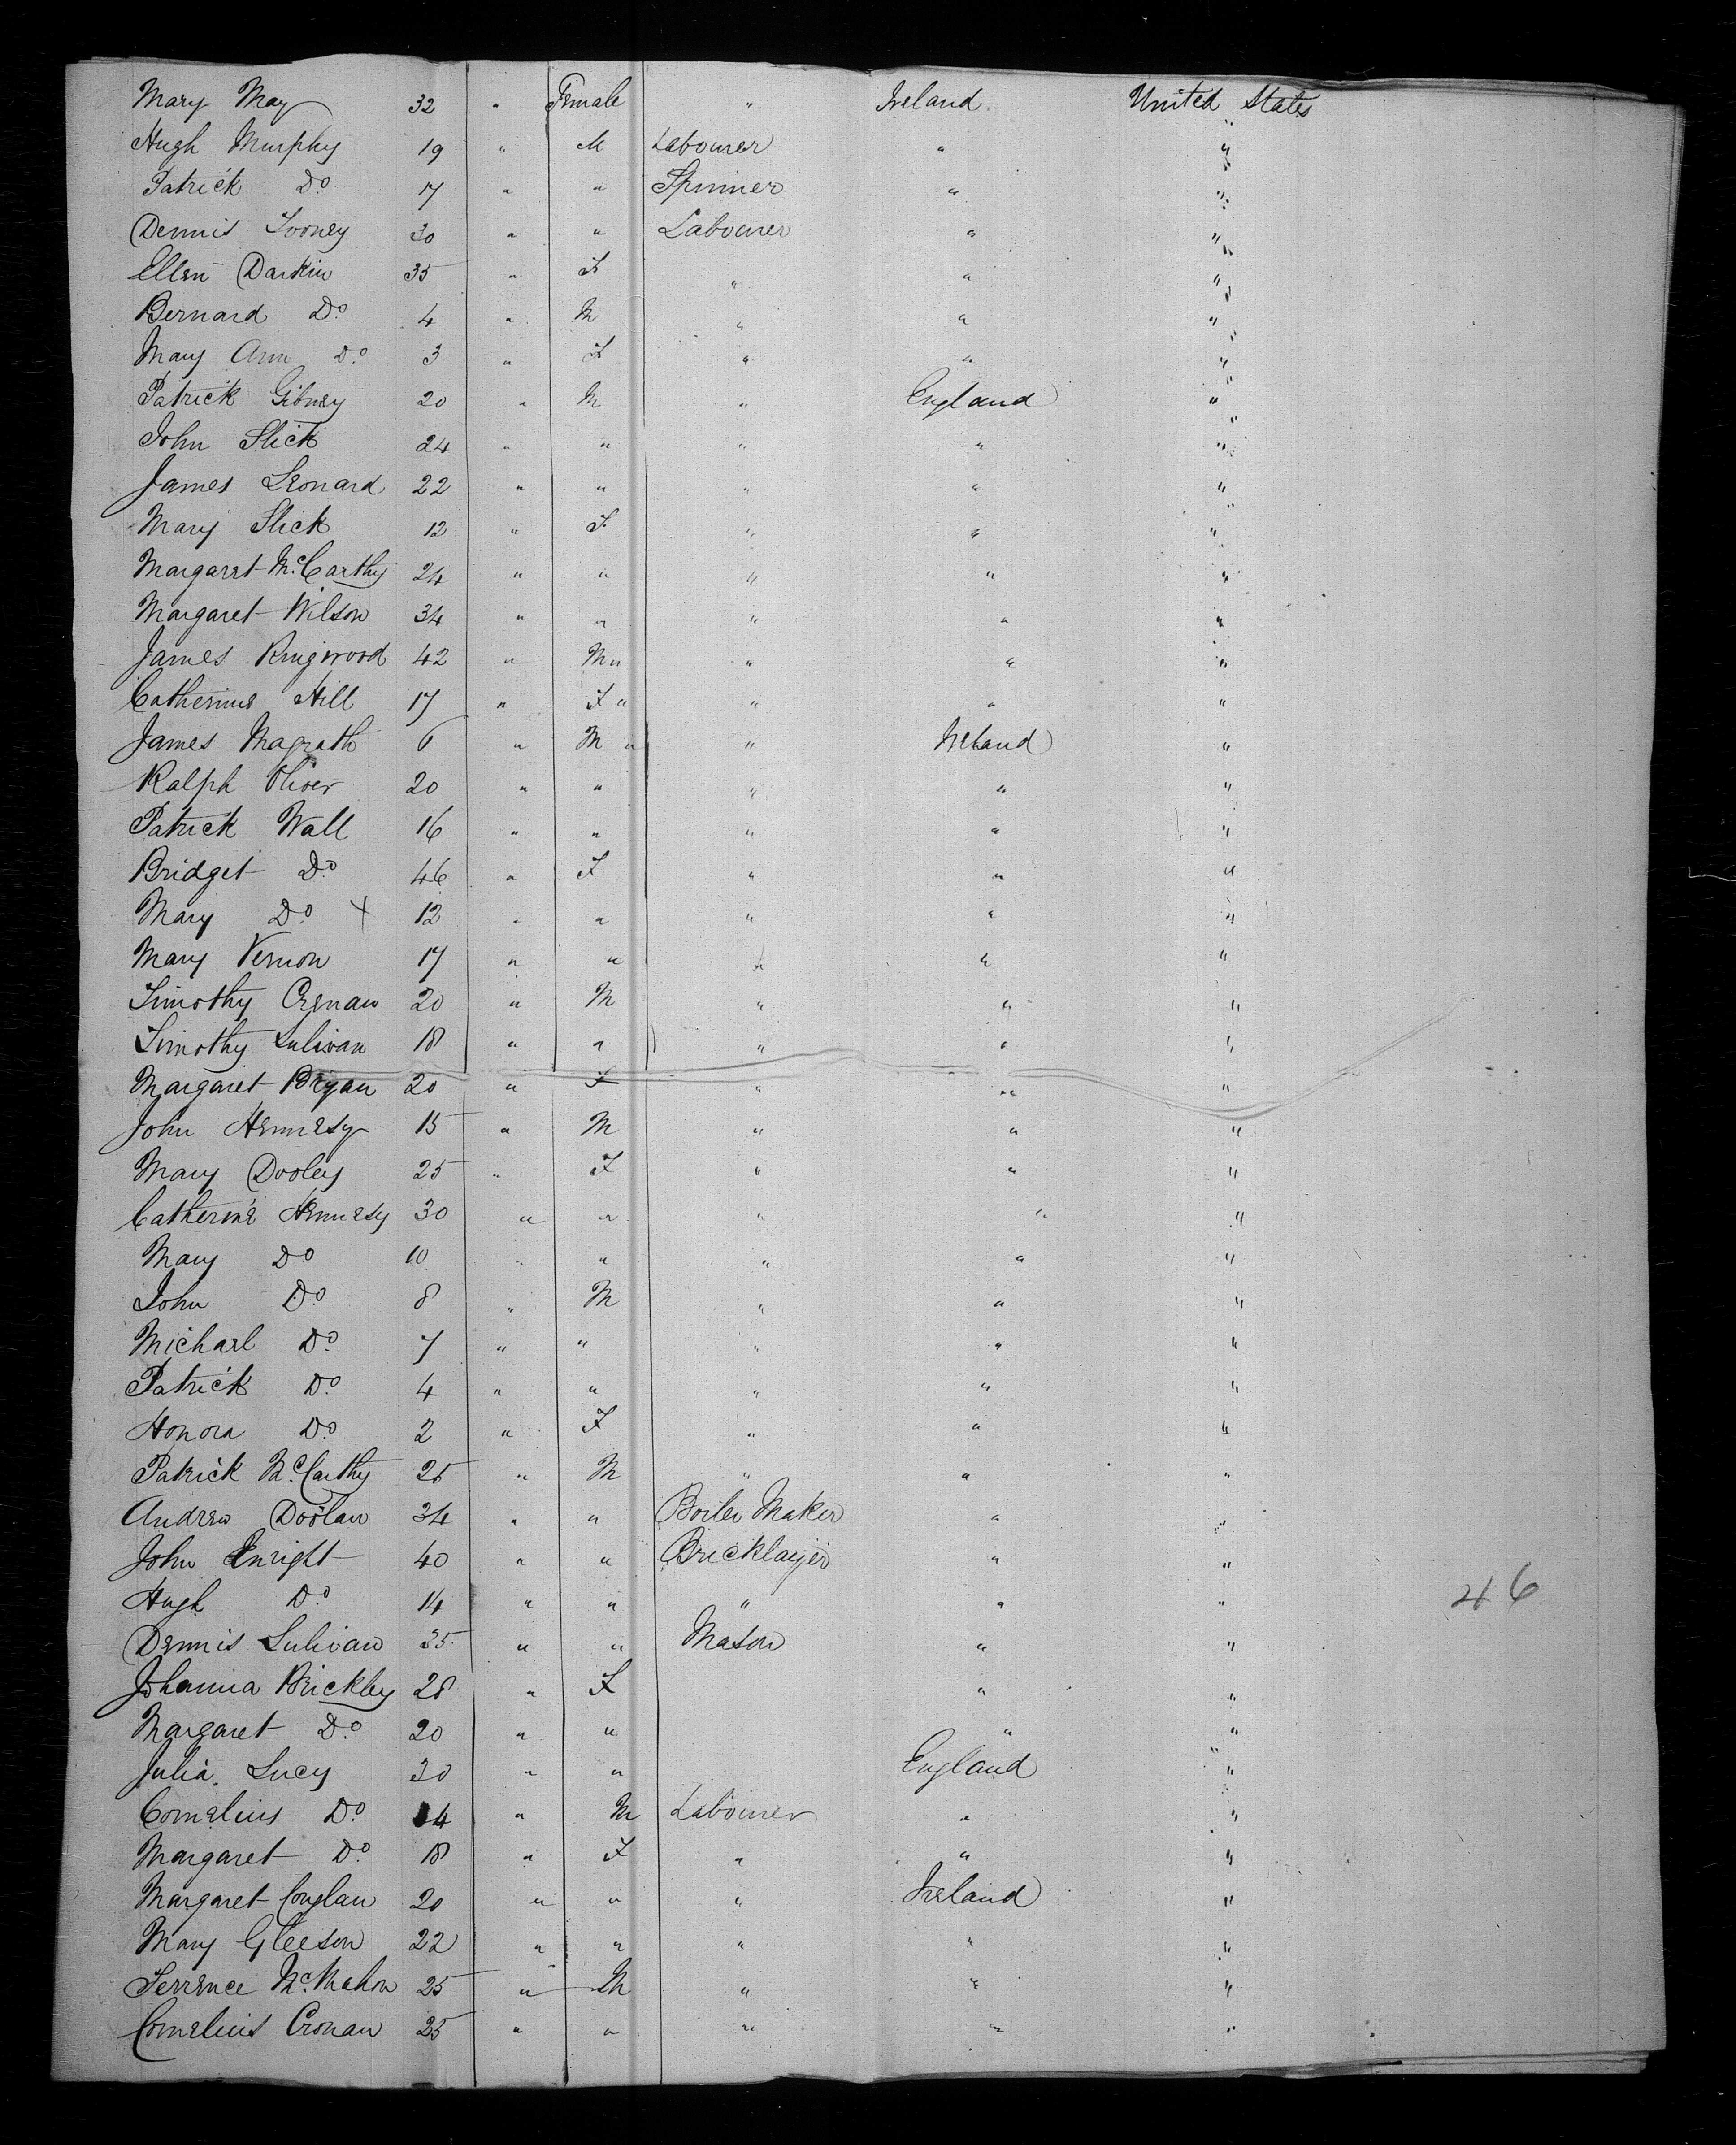 Mary May 32 " Female " Ireland United States
Hugh Murphy 19 " M Labourer " "
Patrick Do 17 " " Spinner " "
Dennis Tooney 30 " " Labourer " "
Ellen Darkin 35 " F " " "
Bernard Do 4 " M " " "
Mary Ann Do 3 " F " " "
Patrick Gibney 20 " M " England "
John Slick 24 " " " " "
James Leonard 22 " " " " "
Mary Slick 12 " F " " "
Margaret McCarthy 24 " " " " "
Margaret Wilson 34 " " " " "
James Ringwood 42 " M " " " "
Catherine Hill 17 " F " " " "
James Magrath 6 " M " " Ireland "
Ralph Oliver 20 " " " " "
Patrick Wall 16 " " " " "
Bridget Do 46 " F " " "
Mary Do X 12 " " " " "
Mary Vernon 17 " " " " "
Timothy Crenan 20 " M " " "
Timothy Sulivan 18 " " " " "
Margaret Bryan 20 " F " " "
John Hennesy 15 " M " " "
Mary Dooley 25 " F " " "
Catherine Hennesy 30 " " " " "
Mary Do 10 " " " " "
John Do 8 " M " " "
Michael Do 7 " " " " "
Patrick Do 4 " " " " "
Honora Do 2 " F " " "
Patrick McCarthy 25 " M " " "
Andrew Doolan 34 " " Boiler Maker " "
John Enright 40 " " Bricklayer " "
Hugh Do 14 " " " " " 46
Dennis Sulivan 35 " " Mason " "
Johanna Brickley 28 " F " "
Margaret Do 20 " " " "
Julia Lucy 30 " " England "
Cornelius Do 4 " M Labourer " "
Margaret Do 18 " F " " "
Margaret Conglan 20 " " " Ireland "
Mary Gleeson 22 " " " " "
Terrence McMahon 25 " M " " "
Cornelius Cronan 25 " " " " "